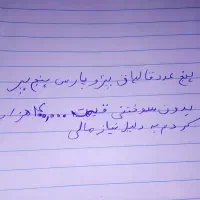 پنج عدد قالپاق پژو پارس پنج پر
بدون سوختنی قیمت ۱۶۰,۰۰۰ هزار
کردم به دلیل نیاز مالی